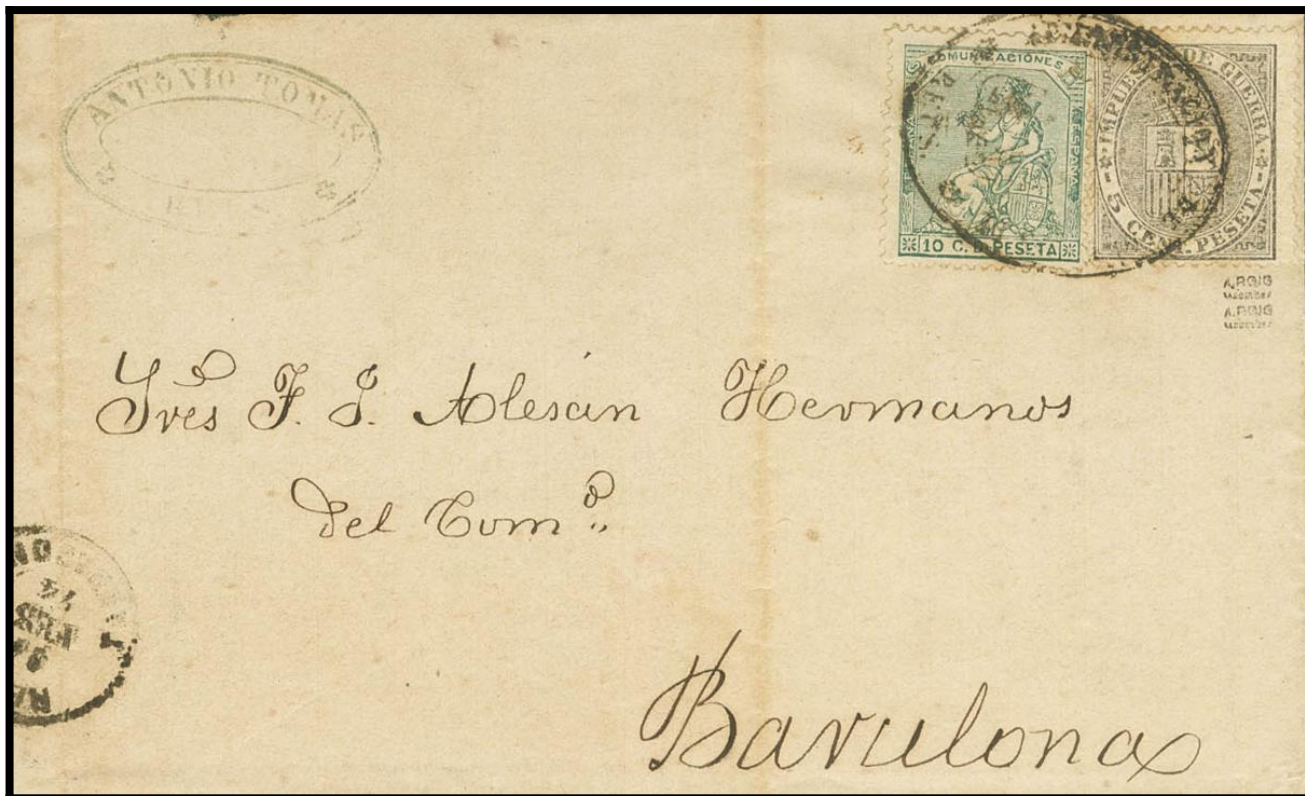 ANTONIO TOMAS
COMUNICACIONES
ESPAÑA
10 C. D. PESETA
IMPUESTO DE GUERRA
5 CENT. PESETA
A. ROIG
A. ROIG
Sres F. J. Alesán Hermanos
del Comº
Barcelona